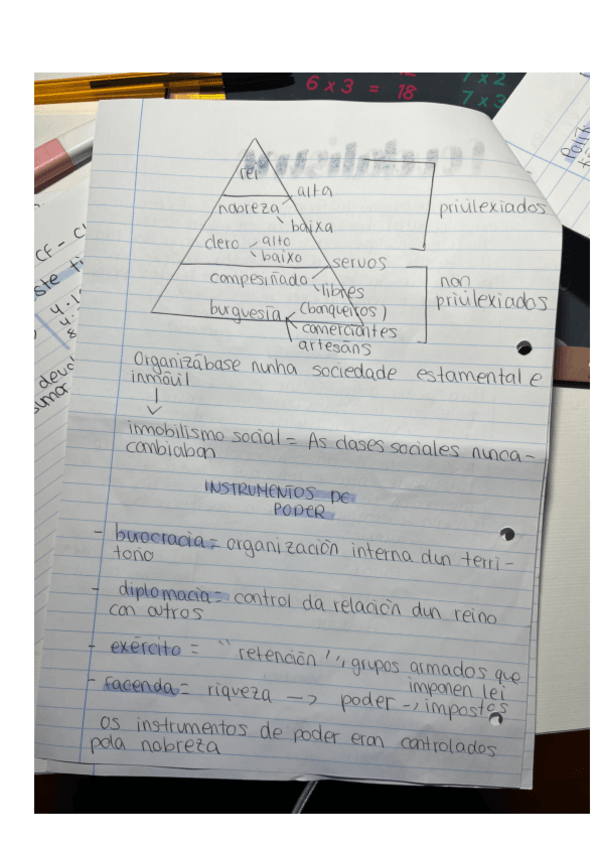 6 x 3 = 18
7 x 2
7 x 3
rei
nobreza
alta
baixa
privilexiados
clero
alto
baixo
servos
campesiñado
libres
non
privilexiados
burguesía
(banqueiros)
comerciantes
artesáns
Organizábase nunha sociedade estamental e
inmóvil
↓
inmobilismo social = As clases sociales nunca-
cambiaban
INSTRUMENTOS DE
PODER
- burocracia = organización interna dun terri-
torio
- diplomacia = control da relación dun reino
con outros
- exército = "retención", grupos armados que
imponen lei
- facenda = riqueza -> poder -> impostos
os instrumentos de poder eran controlados
pola nobreza